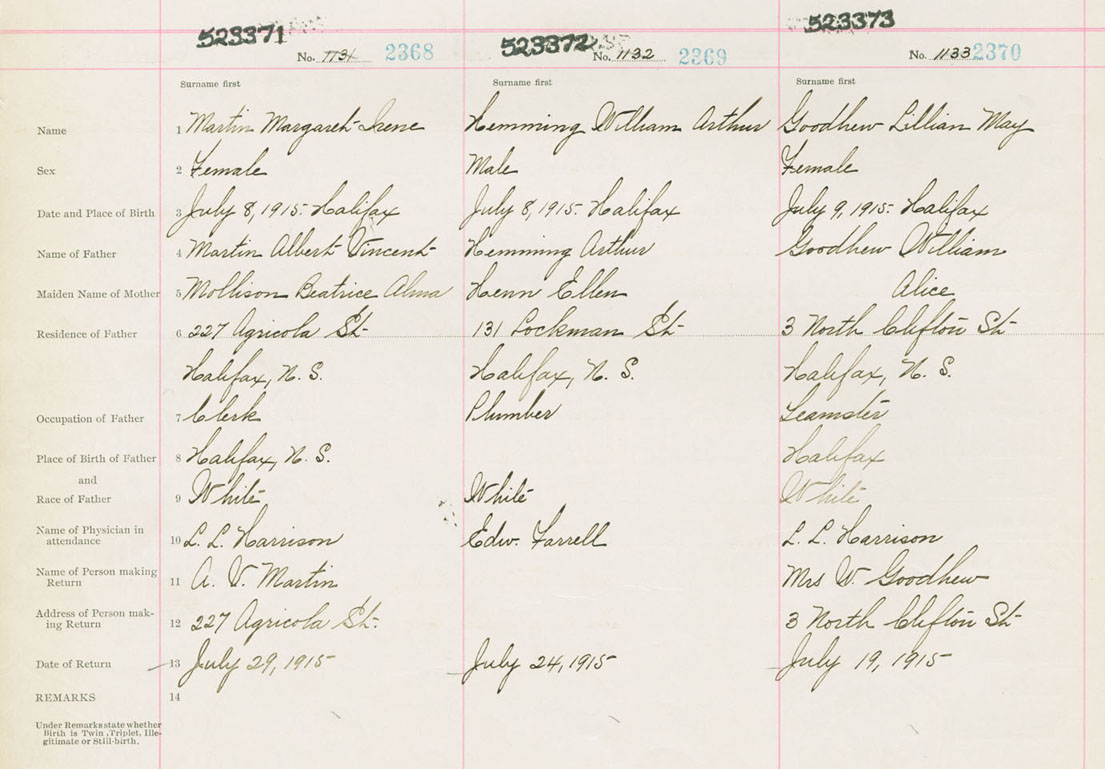 523371 523372 523373
No. 1131 2368 No. 1132 2369 No. 1133 2370
Surname first Surname first Surname first
Name 1 Martin Margaret Irene Hemming William Arthur Goodhew Lillian May
Sex 2 Female Male Female
Date and Place of Birth 3 July 8, 1915. Halifax July 8, 1915. Halifax July 9, 1915. Halifax
Name of Father 4 Martin Albert Vincent Hemming Arthur Goodhew William
Maiden Name of Mother 5 Mollison Beatrice Alma Henn Ellen Alice
Residence of Father 6 227 Agricola St. 131 Lockman St. 3 North Clifton St.
Halifax, N. S. Halifax, N. S. Halifax, N. S.
Occupation of Father 7 Clerk Plumber Teamster
Place of Birth of Father 8 Halifax, N. S. Halifax
and
Race of Father 9 White White White
Name of Physician in
attendance 10 L. L. Harrison Edw. Farrell L. L. Harrison
Name of Person making
Return 11 A. V. Martin Mrs W. Goodhew
Address of Person mak-
ing Return 12 227 Agricola St. 3 North Clifton St.
Date of Return 13 July 29, 1915 July 24, 1915 July 19, 1915
REMARKS 14
Under Remarks state whether
Birth is Twin, Triplet, Ille-
gitimate or Still-birth.